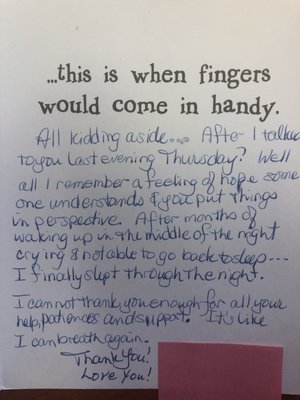 ...this is when fingers
would come in handy.
All kidding aside.... After I talked
to you last evening Thursday? Well
all I remember a feeling of hope some
one understands & you put things
in perspective. After months of
waking up in the middle of the night
crying & not able to go back to sleep...
I finally slept through the night.
I cannot thank you enough for all your
help, patiences and support. It's like
I can breath again.
Thank you!
Love you!